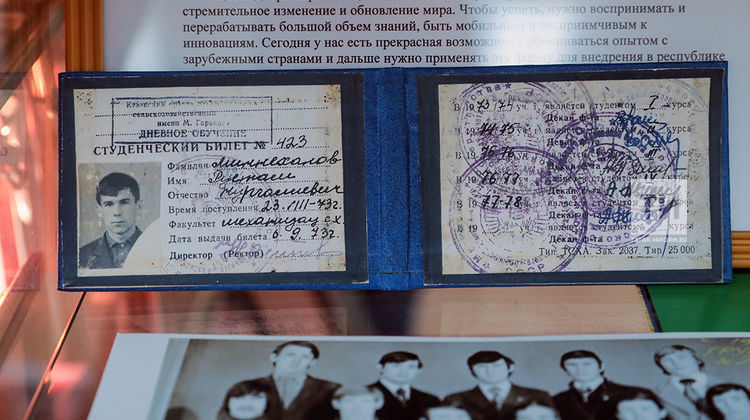 стремительное изменение и обновление мира. Чтобы успеть, нужно воспринимать и
перерабатывать большой объем знаний, быть мобильным и восприимчивым к
инновациям. Сегодня у нас есть прекрасная возможность обмениваться опытом с
зарубежными странами и дальше нужно применять эту форму для внедрения в республике
Казанский
сельскохозяйственный
имени М. Горького
ДНЕВНОЕ ОБУЧЕНИЕ
СТУДЕНЧЕСКИЙ БИЛЕТ № 423
Фамилия Миннеханов
Имя Рустам
Отчество Нургалиевич
Время поступления 23.VIII-73г.
Факультет механизац с х
Дата выдачи билета 6.9.73г
Директор (Ректор)
В 1973/74 уч г является студентом I курса
Декан ф-та
В 1974-75 уч г является студентом курса
Декан ф-та
В 1975-76 уч г является студентом III курса
Декан ф-та
В 1976-77 уч г является студентом курса
Декан ф-та
В 1977-78 является студентом курса
Декан ф-та
СССР
Тип. ТСХА. Зак. 2037. Тир/25 000